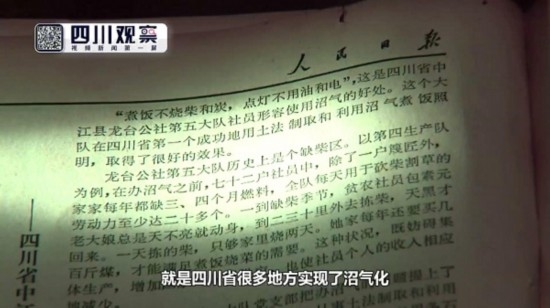 四川观察
视频新闻第一屏
人民日报
“煮饭不烧柴和炭，点灯不用油和电”，这是四川省中
江县龙台公社第五大队社员形容使用沼气的好处。这个大
队在四川省第一个成功地用土法 制取和 利用沼 气煮 饭照
明，取得了很好的效果。
龙台公社第五大队历史上是个缺柴区。以第四生产队
为例，在办沼气之前，七十二户社员中，除了一户篾匠外，
家家每年都缺三、四个月燃料，全队每天用于砍柴割草的
劳动力至少达二十多个。一到缺柴季节，贫农社员包素元
老大娘总是天不亮就动身，到二三十里外去拣柴，天黑才
回来。一天拣的柴，只够家里烧两天。她家每年还要买几
百斤煤，才能满足煮饭烧菜的需要。这种状况，既妨碍集
体生产，增加
也使社员个人的收入相应
——四川省中
就是四川省很多地方实现了沼气化